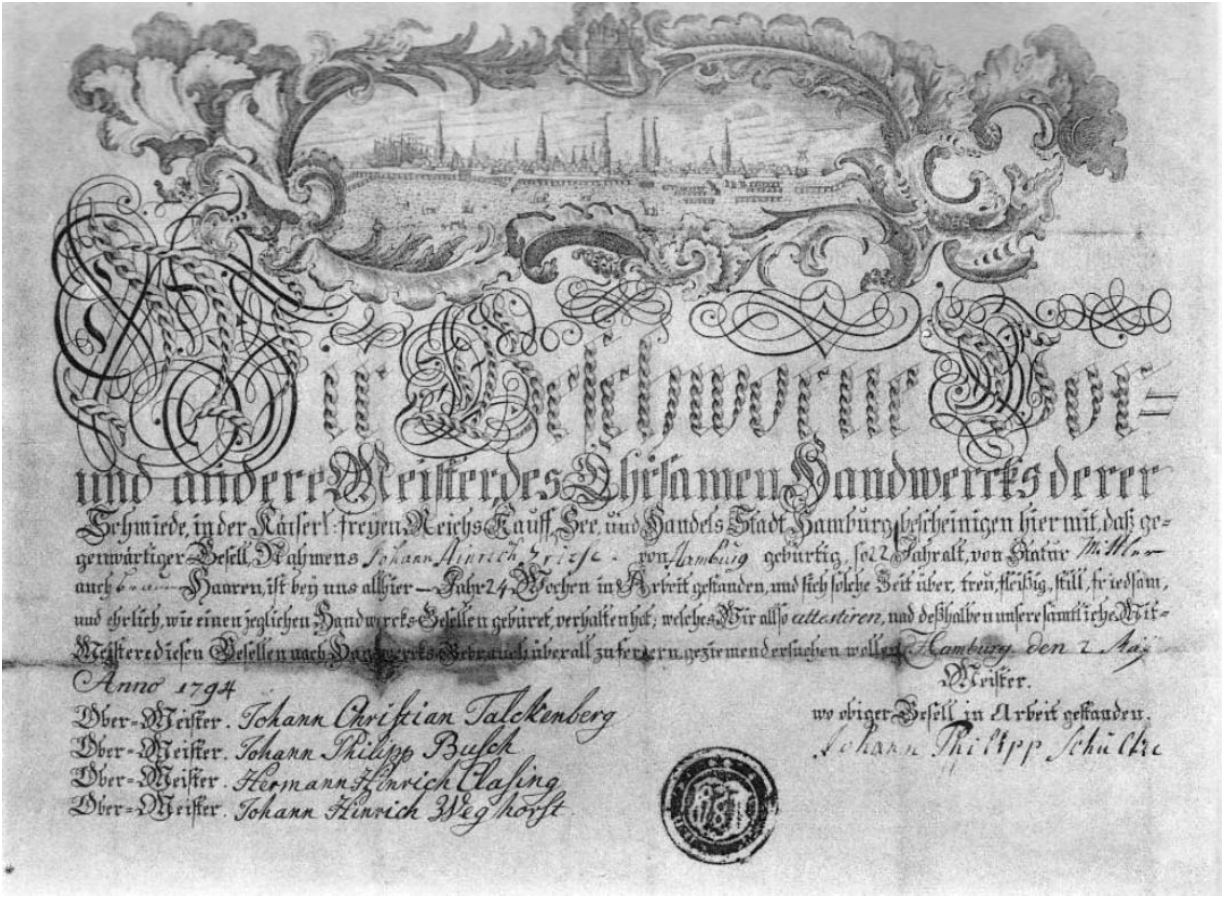 Wir Geschworne Vor=
und andere Meister, des Ehrsamen Handwercks derer
Schmiede, in der Käiserl: freyen Reichs Kauff, See, und Handels Stadt Hamburg, bescheinigen hiermit, daß ge=
genwärtiger Gesell, Nahmens Johann Hinrich von Hamburg gebürtig, so 22 Jahr alt, von Statur Mittler
auch braun Haaren, ist bey uns allhier — Jahr 24 Wochen in Arbeit gestanden, und sich solche Zeit über, treu, fleißig, still, friedsam,
und ehrlich, wie einen jeglichen Handwercks-Gesellen gebüret, verhalten hat; welches Wir allso attestiren, und deßhalben unsere sämtliche Mit=
Meistere diesen Gesellen nach Handwercks Gebrauch überall zu fordern, geziemend ersuchen wollen, Hamburg den 2 May
Anno 1794
Meister.
Ober=Meister. Johann Christian Talckenberg
wo obiger Gesell in Arbeit gestanden.
Ober=Meister. Johann Philipp Busch
Johann Philipp Schultze
Ober=Meister. Hermann Hinrich Clasing
Ober=Meister. Johann Hinrich Weghorst